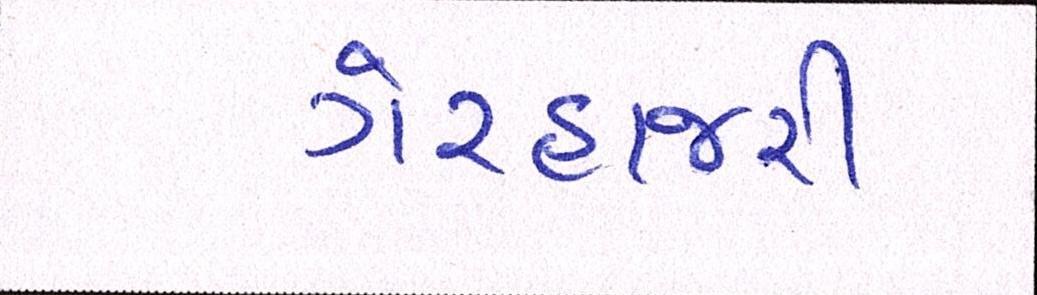 ગેરહાજરી